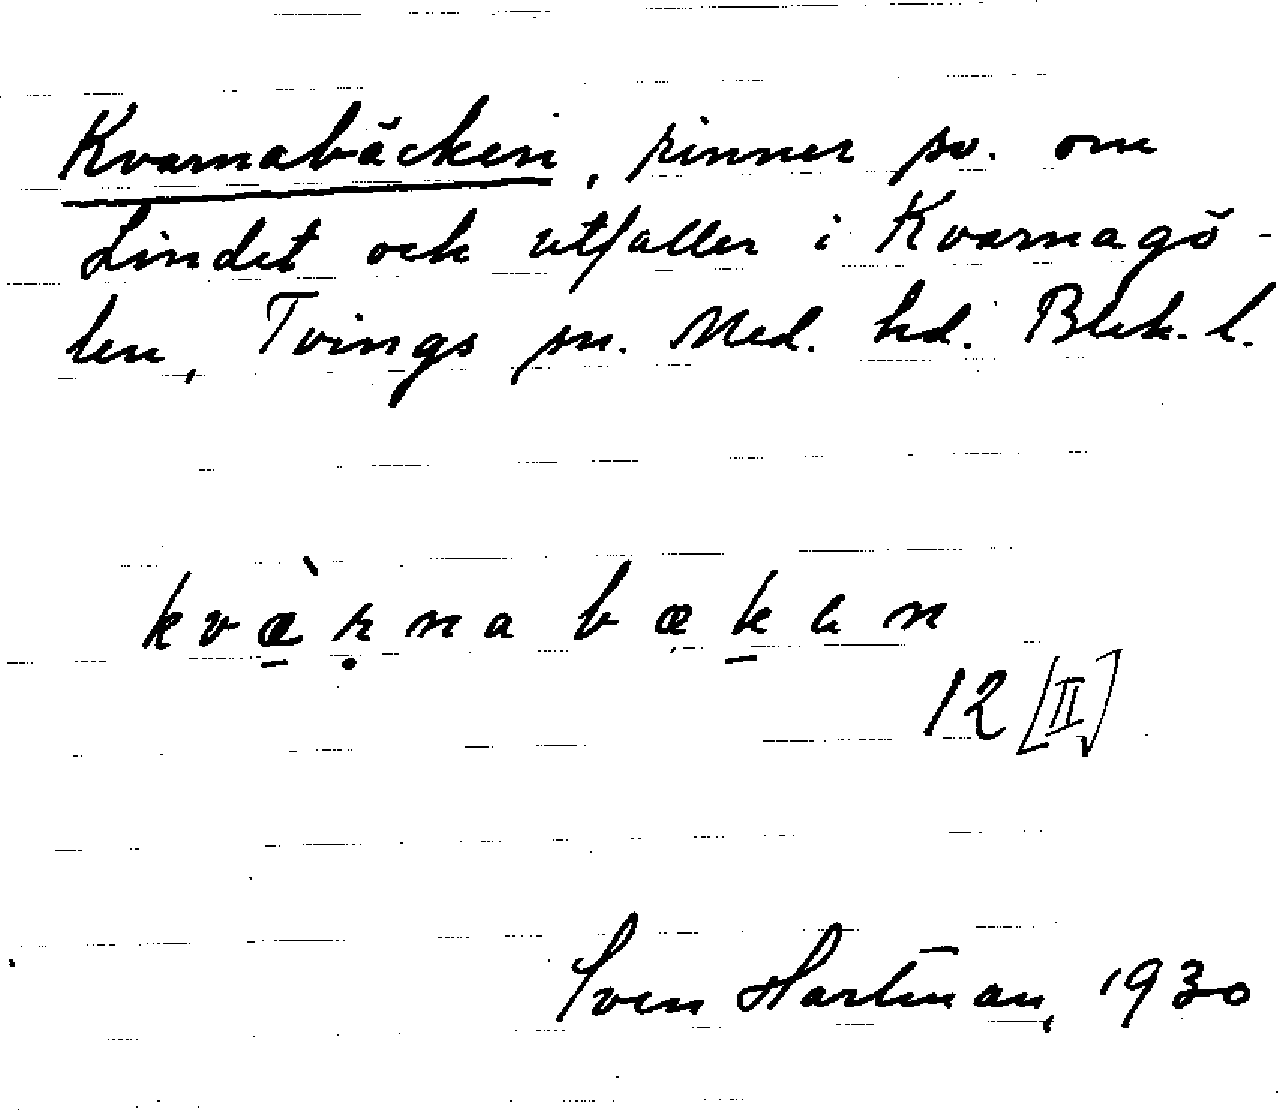 Kvarnabäcken, rinner sv. om
Lindet och utfaller i Kvarnagö-
len, Tvings sn. Med. hd. Blek. l.
kvæ̱̀ṛnabæḵen
12 [II]
Sven Hartman, 1930